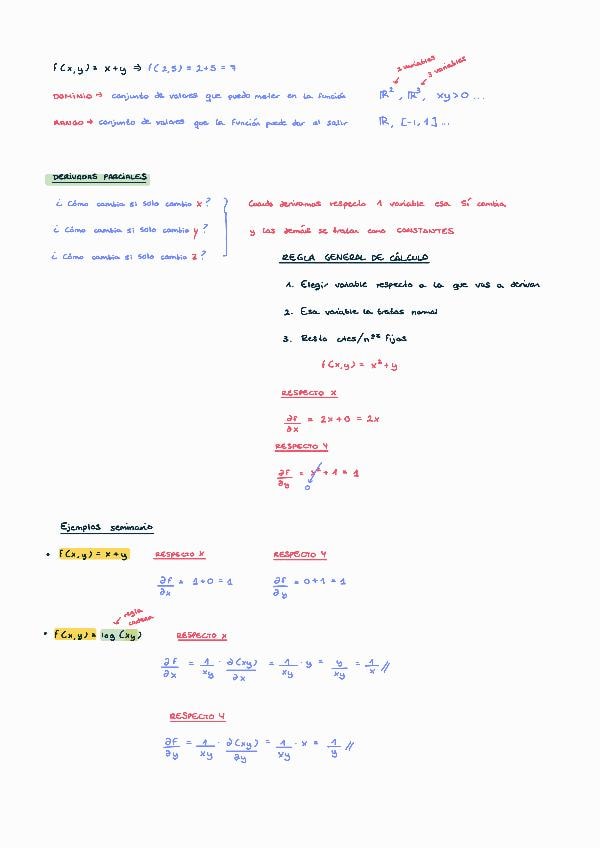 f(x,y) = x+y ⇒ f(2,5) = 2+5 = 7
2 variables
3 variables
DOMINIO → conjunto de valores que puedo meter en la función ℝ², ℝ³, xy>0 ...
RANGO → conjunto de valores que la función puede dar al salir ℝ, [-1, 1] ...
DERIVADAS PARCIALES
¿ Cómo cambia si solo cambio x?
¿ Cómo cambia si solo cambio y?
¿ Cómo cambia si solo cambio z?
Cuando derivamos respecto 1 variable esa SÍ cambia
y las demás se tratan como CONSTANTES
REGLA GENERAL DE CÁLCULO
1. Elegir variable respecto a la que vas a derivar
2. Esa variable la tratas normal
3. Resto ctes/nºs fijos
f(x,y) = x²+y
RESPECTO X
∂f/∂x = 2x+0 = 2x
RESPECTO Y
∂f/∂y = x²+1 = 1
0
Ejemplos seminario
• f(x,y) = x+y RESPECTO X RESPECTO Y
∂f/∂x = 1+0 = 1 ∂f/∂y = 0+1 = 1
regla cadena
• f(x,y) = log(xy) RESPECTO X
∂f/∂x = 1/xy · ∂(xy)/∂x = 1/xy · y = y/xy = 1/x //
RESPECTO Y
∂f/∂y = 1/xy · ∂(xy)/∂y = 1/xy · x = 1/y //